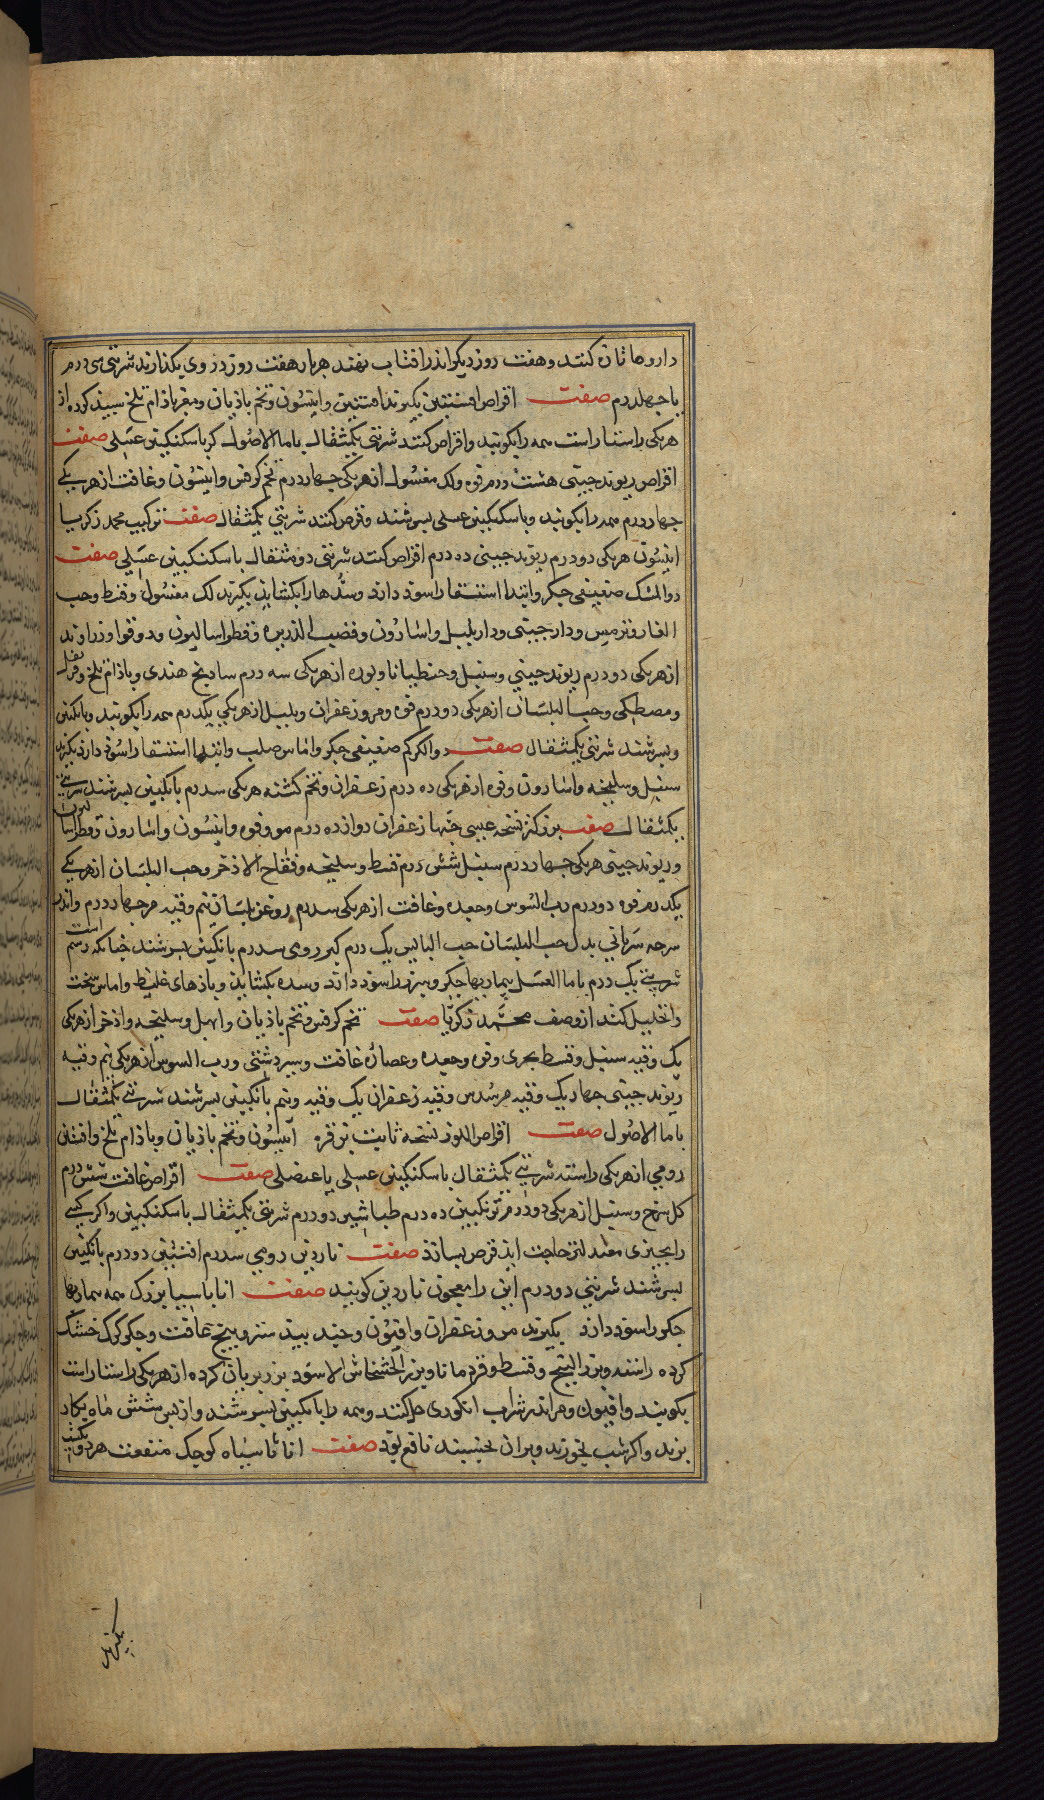 داروها تازه کنند و هفت روز دیکر اندر افتاب نهند هر بار هفت روز در وی بگذارند شربتی سی درم
یا چهلدرم صفت اقراص افسنتین بگیرند افسنتین و انیسون و تخم بادیان و مغز باذام تلخ سپید کرده از
هریکی راستاراست همه را بکوبند و اقراص کنند شربتی یکمثقال با ما الاصول کر با سکنکبین عسلی صفت
اقراص ریوند چینی هشت درم فوه ولک مغسول از هریکی چهاردرم تخم کرفس و انیسون و غافت از هریکی
چهاردرم همه را بکوبند و با سکنکبین عسلی بسرشند و قرص کنند شربتی یکمثقال صفت ترکیب محمد زکریا
انیسون هریکی دو درم ریوند چینی ده درم اقراص کنند شربتی دو مثقال با سکنکبین عسلی صفت
دوالمسک ضعیفی جکر و ابتدا استسقا را سود دارد و سدها را بکشاید بگیرند لک مغسول و قسط و حب
الغار و ترمس و دارچینی و دار بلبل و اسارون و قصب الذریره و فطراسالیون و دوقوا و زراوند
از هریکی دو درم ریوند چینی و سنبل و جنطیانا و بوره از هریکی سه درم سادج هندی و باذام تلخ و قرنفل
و مصطکی و حب البلسان از هریکی دو درم فوه و مر و زعفران و بلبل از هریکی یکدرم همه را بکوبند و بانکبین
و بسرشند شربتی یکمثقال صفت دوالکرکم ضعیفی جکر و اماس صلب و ابتدا استسقا را سود دارد بگیرند
سنبل و سلیخه و اسارون و فوه از هریکی ده درم زعفران و تخم کشنه هریکی سدرم بانکبین بسرشند شربتی
یکمثقال صفت بزرکتر نسخه عیسی جهار زعفران دوازده درم مو و فوه و انیسون و اسارون و فطراسالیون
و ریوند چینی هریکی چهاردرم سنبل شش درم قسط و سلیخه و فقاح الاذخر و حب البلسان از هریکی
یکدرم فوه دو درم رب السوس و جعده و غافت از هریکی سدرم روغن بلسان نیم وقیه مر چهاردرم و اندر
سرجه سریانی بدل حب البلسان حب البان یک درم کبر رومی سدرم بانکبین بسرشند جنانکه رسم است
شربتی یک درم با ما العسل بیماریها جکر و سپرز را سود دارد و سده بکشاید و بادهای غلیظ و اماس سخت
را تحلیل کند از وصف محمد زکریا صفت تخم کرفس و تخم بادیان و ابهل و سلیخه و اذخر از هریکی
یک وقیه سنبل و قسط بحری و فوه و جعده و عصاره غافت و سیر دشتی و رب السوس از هریکی نیم وقیه
ریوند چینی جهار یک وقیه مر سدس وقیه زعفران یک وقیه و نیم بانکبین بسرشند شربتی یکمثقال
با ما الاصول صفت اقراص اللوز نسخه ثابت بن قره انیسون و تخم بادیان و باذام تلخ و افسنتین
رومی از هریکی راسته شربتی یکمثقال با سکنکبین عسلی یا عنصلی صفت اقراص غافت شش درم
کل سرخ و سنبل از هریکی دو درم ترنکبین ده درم طباشیر دو درم شربتی یکمثقال با سکنکبین و اکر کسی
را بچیزی معتدلتر حاجت اید قرص بسازد صفت ناردین رومی سدرم افسنتین دو درم بانکبین
بسرشند شربتی دو درم این را معجون ناردین کویند صفت اثاناسیا بزرک همه بیماریها
جکر را سود دارد بگیرند مر و زعفران و افیون و جندبیدستر و بنج غافت و جکر کرک خشک
کرده راسته و بزر البنج و قسط و قردمانا و بزر الخشخاش الاسود بز بریان کرده از هریکی راستاراست
بکوبند و افیون و مر اندر شراب انکوری حل کنند و همه را بانکبین بسرشند و از بس شش ماه بکار
برند و اکر شب بخورند و بران بخسبند نافع بود صفت اثاناسیاه کوجک منفعت هر دو یکیست
بگیرند